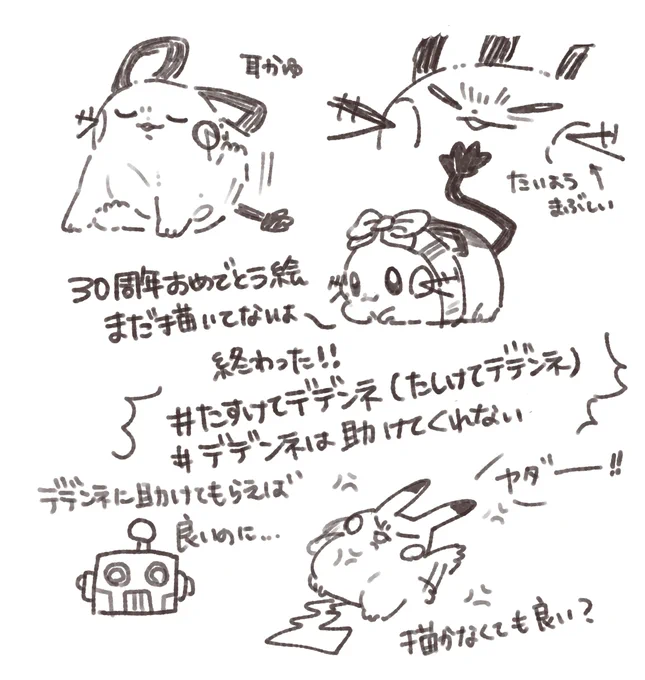 耳かゆ
たいよう↑
まぶしい
30周年おめでとう絵
まだ描いてないよ
終わった!!
#たすけてデデンネ(たしけてデデンネ)
#デデンネは助けてくれない
デデンネに助けてもらえば
良いのに…
ヤダー!!
描かなくても良い?